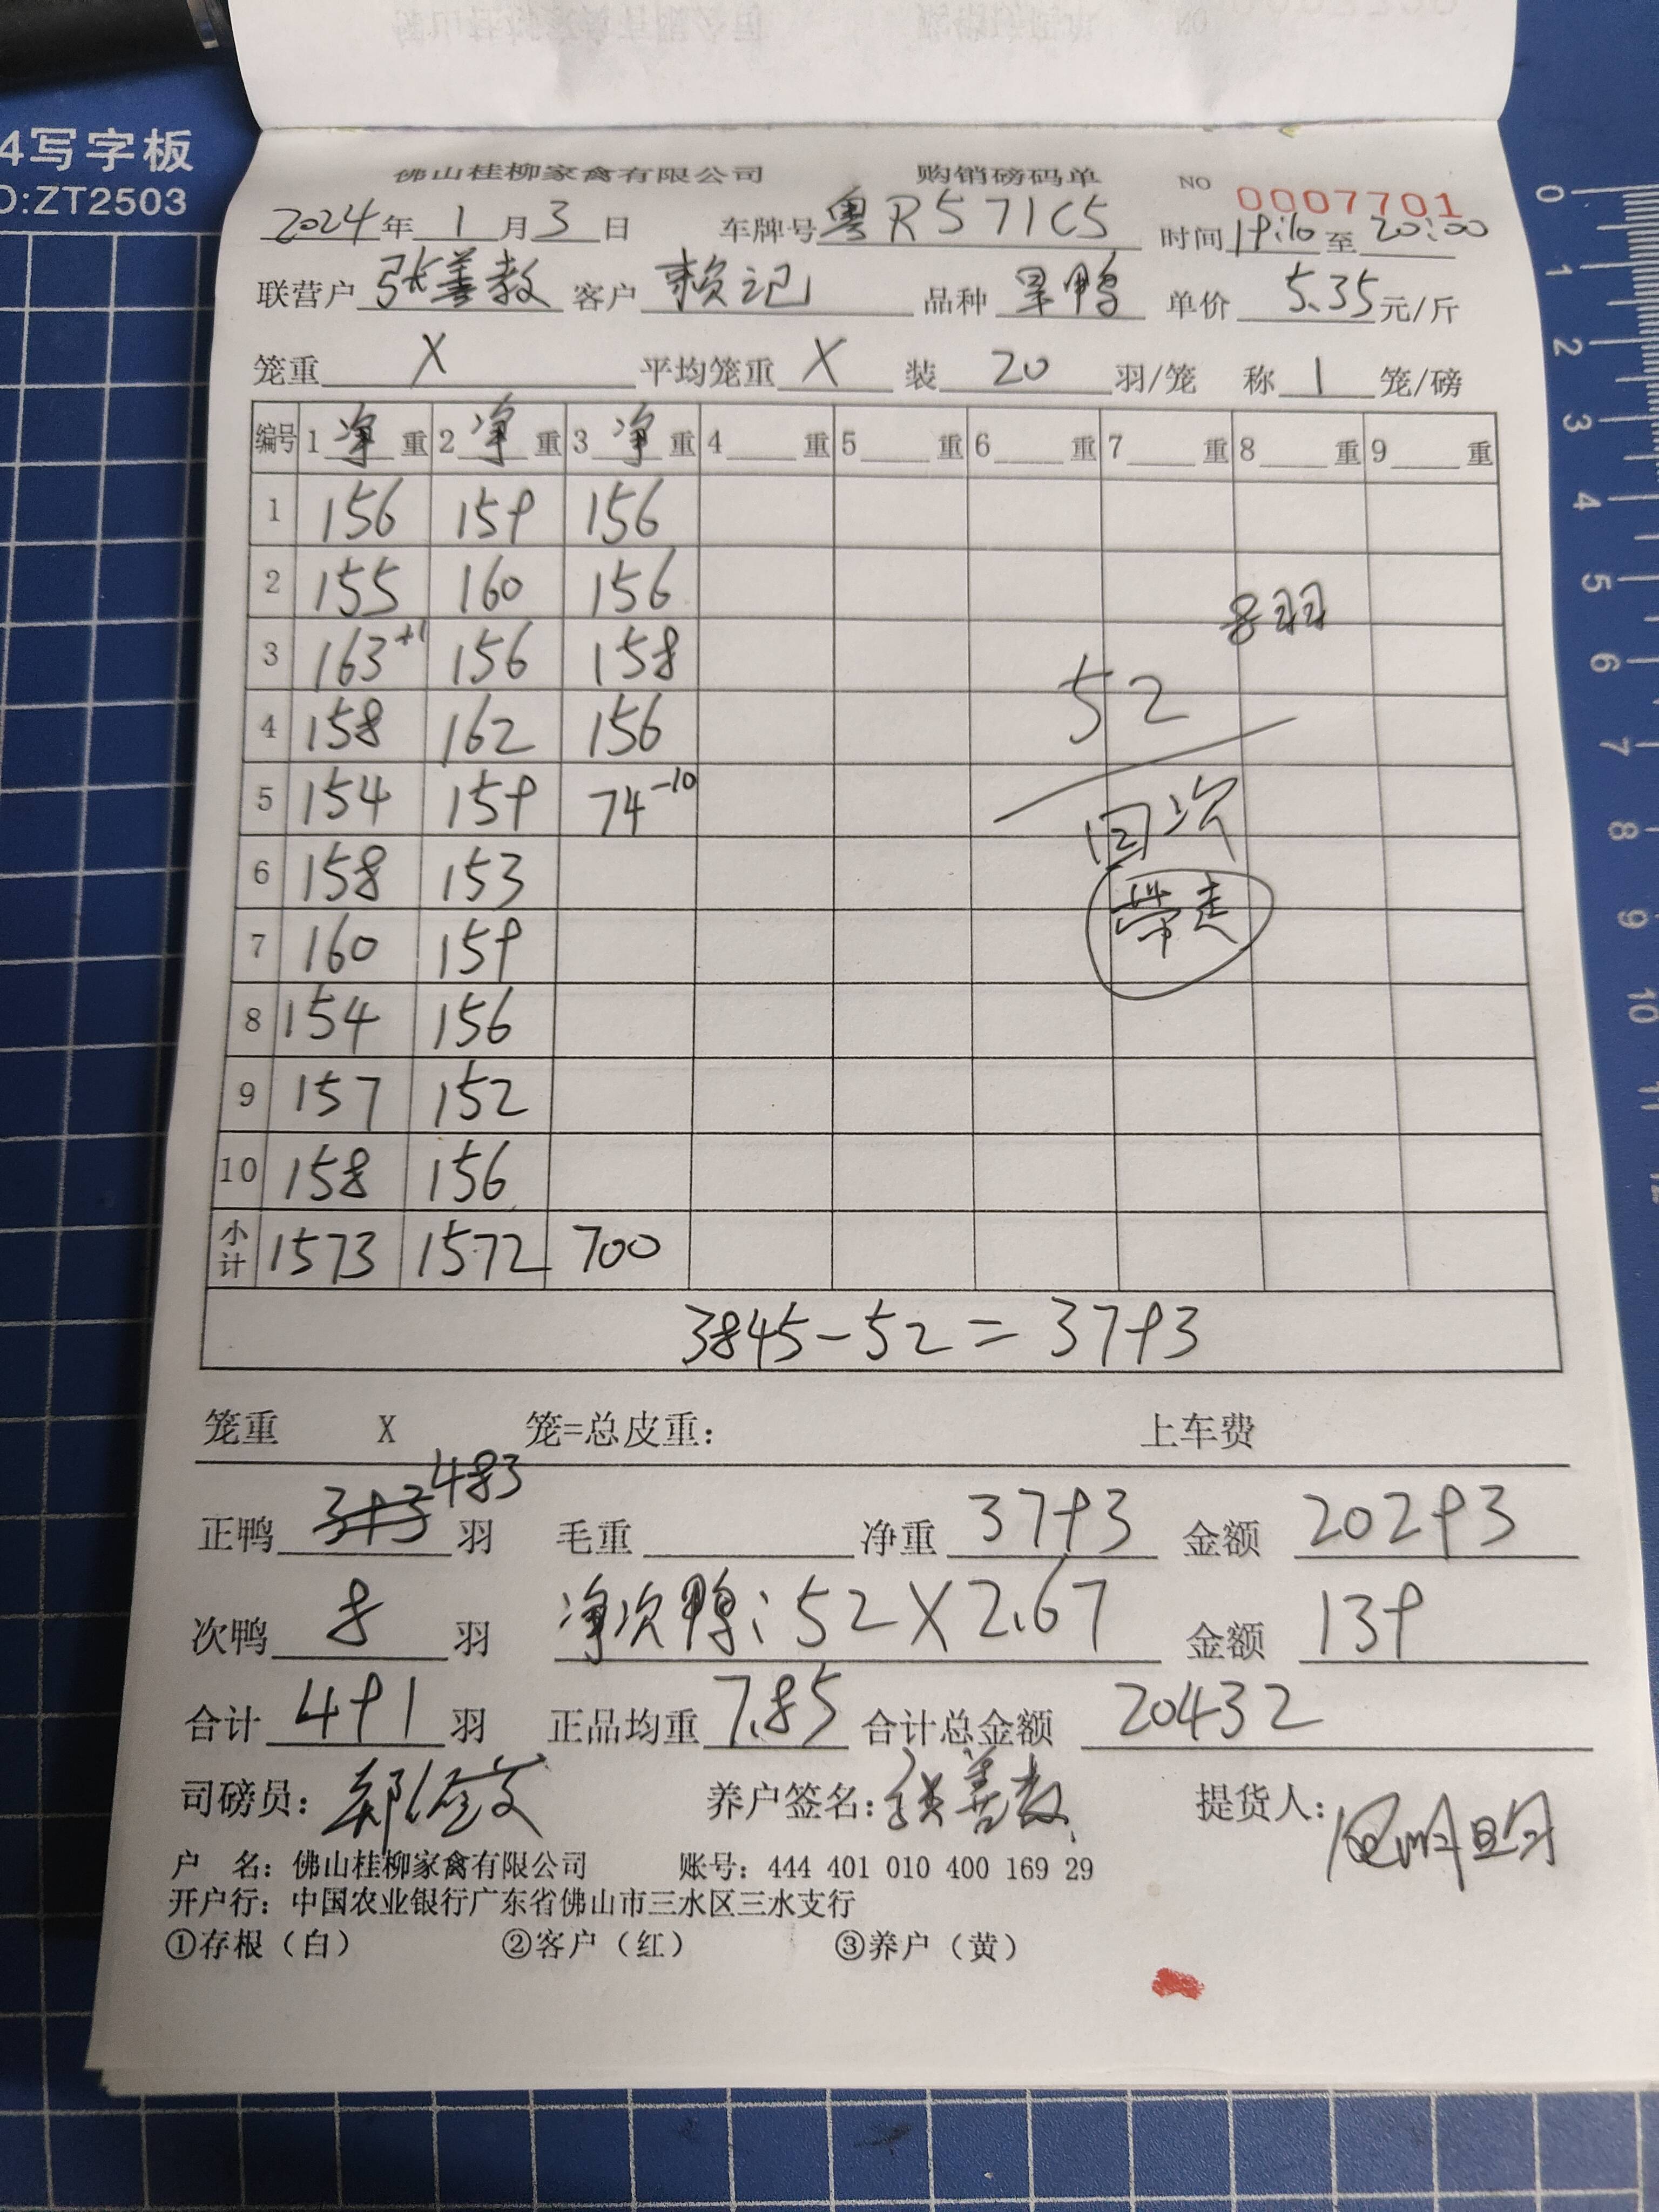 4写字板
D:ZT2503
佛山桂柳家禽有限公司 购销磅码单 NO 0007701
2024年1月3日 车牌号 粤R571C5 时间 19:10 至 20:00
联营户 张善教 客户 赖记 品种 果鸭 单价 5.35 元/斤
笼重 X 平均笼重 X 装 20 羽/笼 称 1 笼/磅
编号 1 净 重 2 净 重 3 净 重 4 重 5 重 6 重 7 重 8 重 9 重
1 156 159 156
2 155 160 156
8羽
3 163+1 156 158
52
4 158 162 156
5 154 159 74-10
回次
6 158 153
带走
7 160 159
8 154 156
9 157 152
10 158 156
小计 1573 1572 700
3845-52=3793
笼重 X 笼=总皮重: 上车费
正鸭 393 483 羽 毛重 净重 3793 金额 20293
次鸭 8 羽 净次鸭: 52X2.67 金额 139
合计 491 羽 正品均重 7.85 合计总金额 20432
司磅员: 养户签名: 张善教 提货人:
户 名: 佛山桂柳家禽有限公司 账号: 444 401 010 400 169 29
开户行: 中国农业银行广东省佛山市三水区三水支行
①存根(白) ②客户(红) ③养户(黄)
0
1
2
3
4
5
6
7
8
9
10
11
12